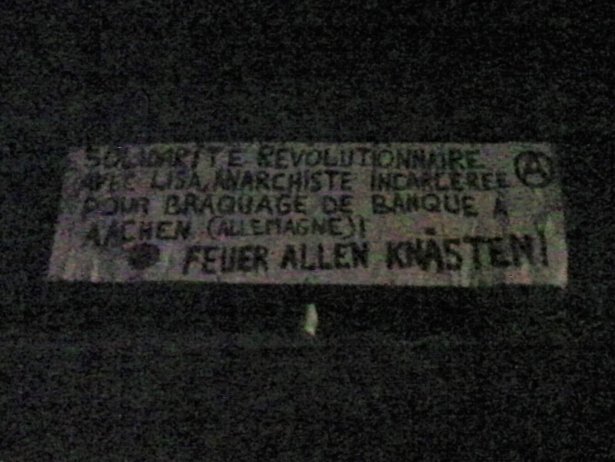 SOLIDARITE REVOLUTIONNAIRE
AVEC LISA, ANARCHISTE INCARCEREE
POUR BRAQUAGE DE BANQUE A
AACHEN (ALLEMAGNE)!
FEUER ALLEN KNÄSTEN!